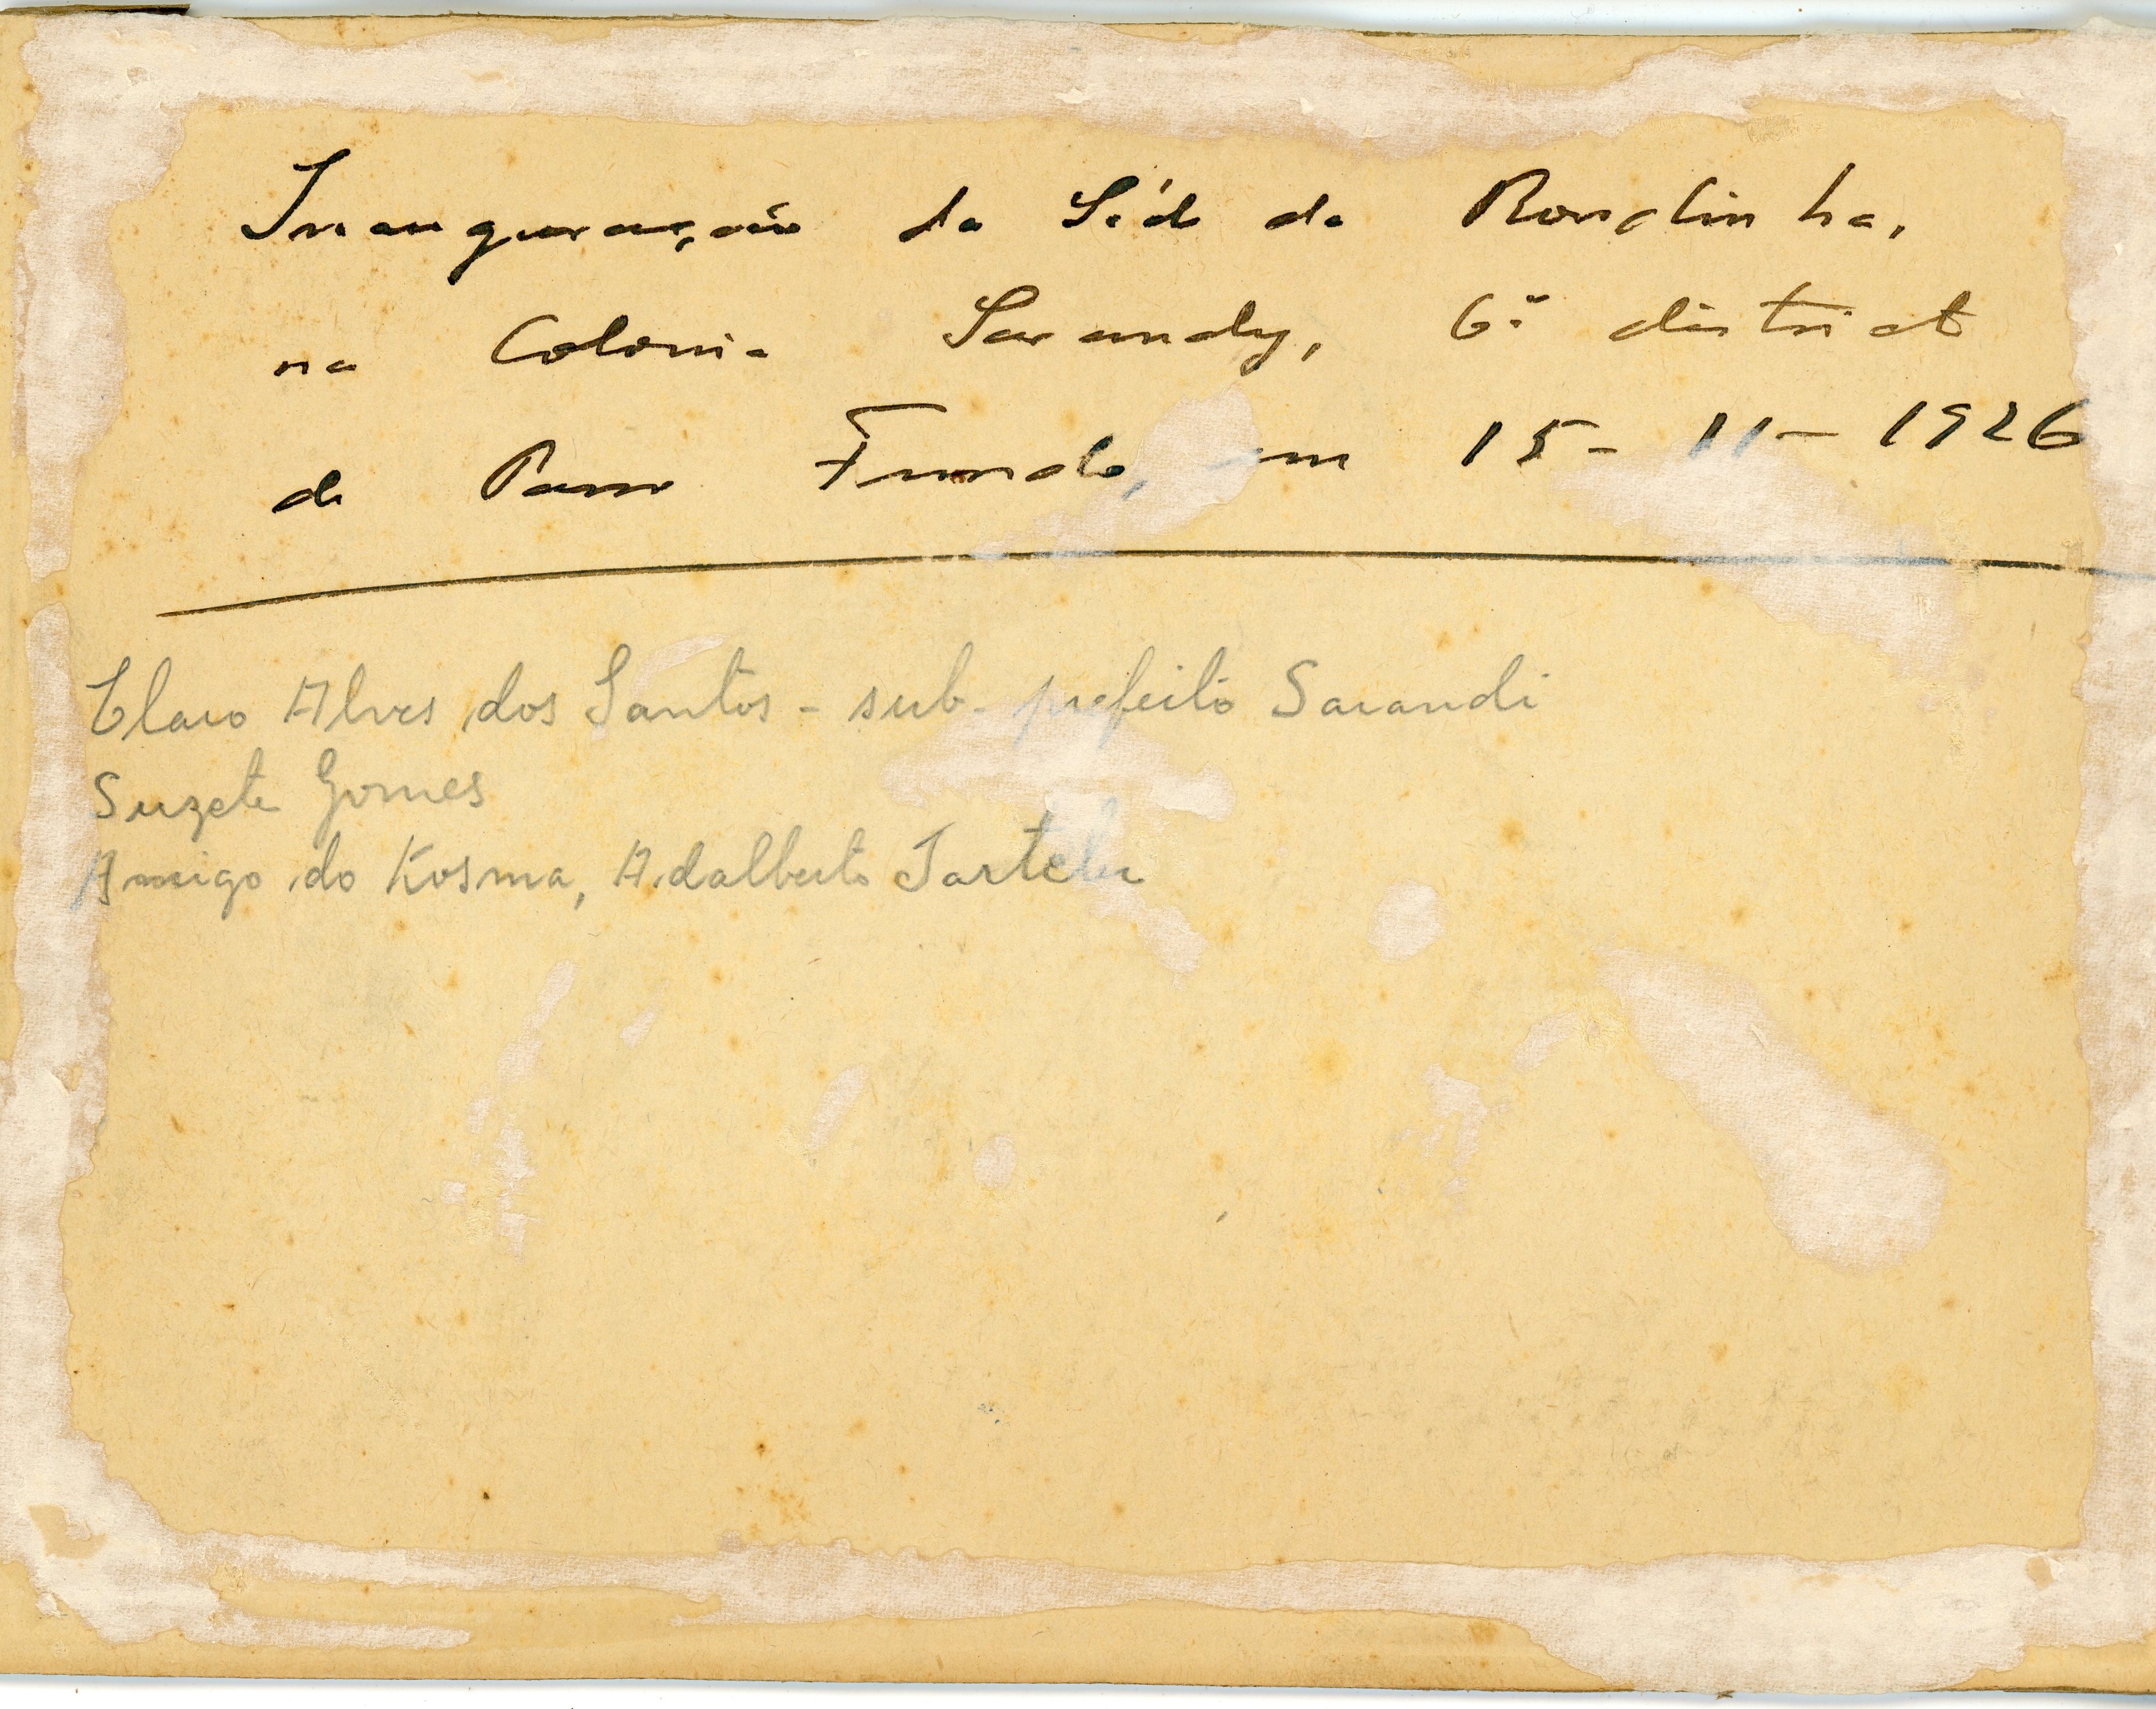 Inauguração da Séde da Rondinha,
na Colonia Sarandy, 6º districto
de Passo Fundo, em 15-11-1926
Claro Alves dos Santos - sub-prefeito Sarandi
Suzete Gomes
Amigo do Kosma, Adalberto